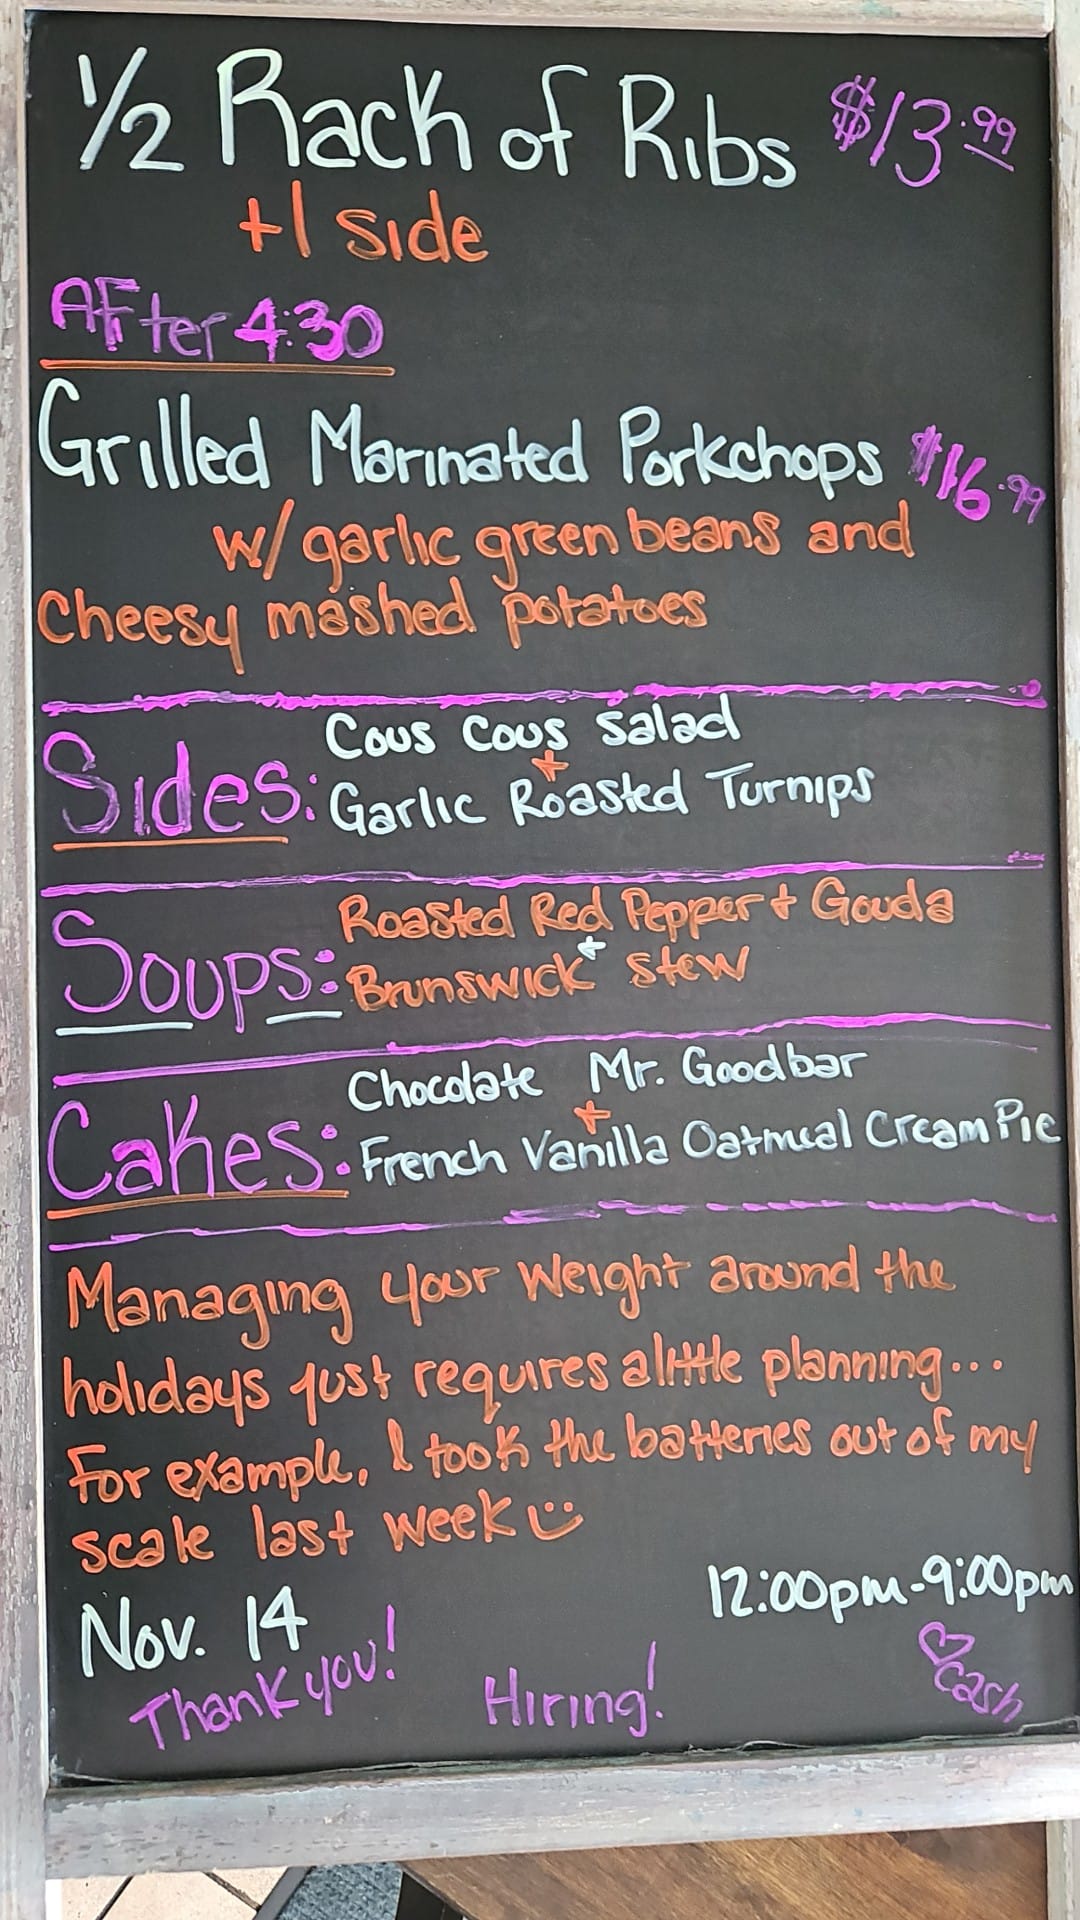 1/2 Rack of Ribs $13.99
+1 side
After 4:30
Grilled Marinated Porkchops $16.99
w/ garlic green beans and
Cheesy mashed potatoes
Sides: Cous Cous Salad
+
Garlic Roasted Turnips
Soups: Roasted Red Pepper + Gouda
+
Brunswick Stew
Cakes: Chocolate Mr. Goodbar
+
French Vanilla Oatmeal Cream Pie
Managing your weight around the
holidays just requires a little planning...
For example, I took the batteries out of my
scale last week
Nov. 14 12:00pm-9:00pm
Thank you! Hiring! ♡cash